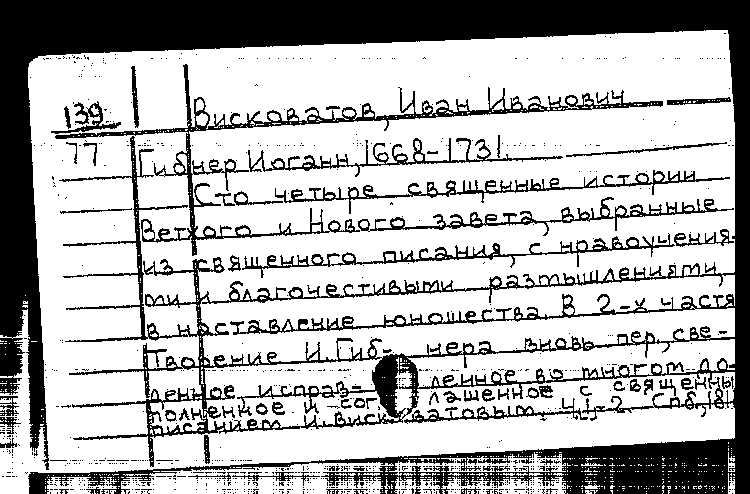 139
Висковатов, Иван Иванович
77
Гибнер Иоганн, 1668-1731.
Сто четыре священные истории
Ветхого и Нового завета, выбранные
из священного писания, с нравоучения-
ми и благочестивыми размышлениями,
в наставление юношества. В 2-х частя
Творение И. Гиб- нера вновь пер., све-
денное, исправ- ленное во многом, до-
полненное и сог лашенное с священны
писанием И. Висковатовым. Ч. 1-2. Спб, 181